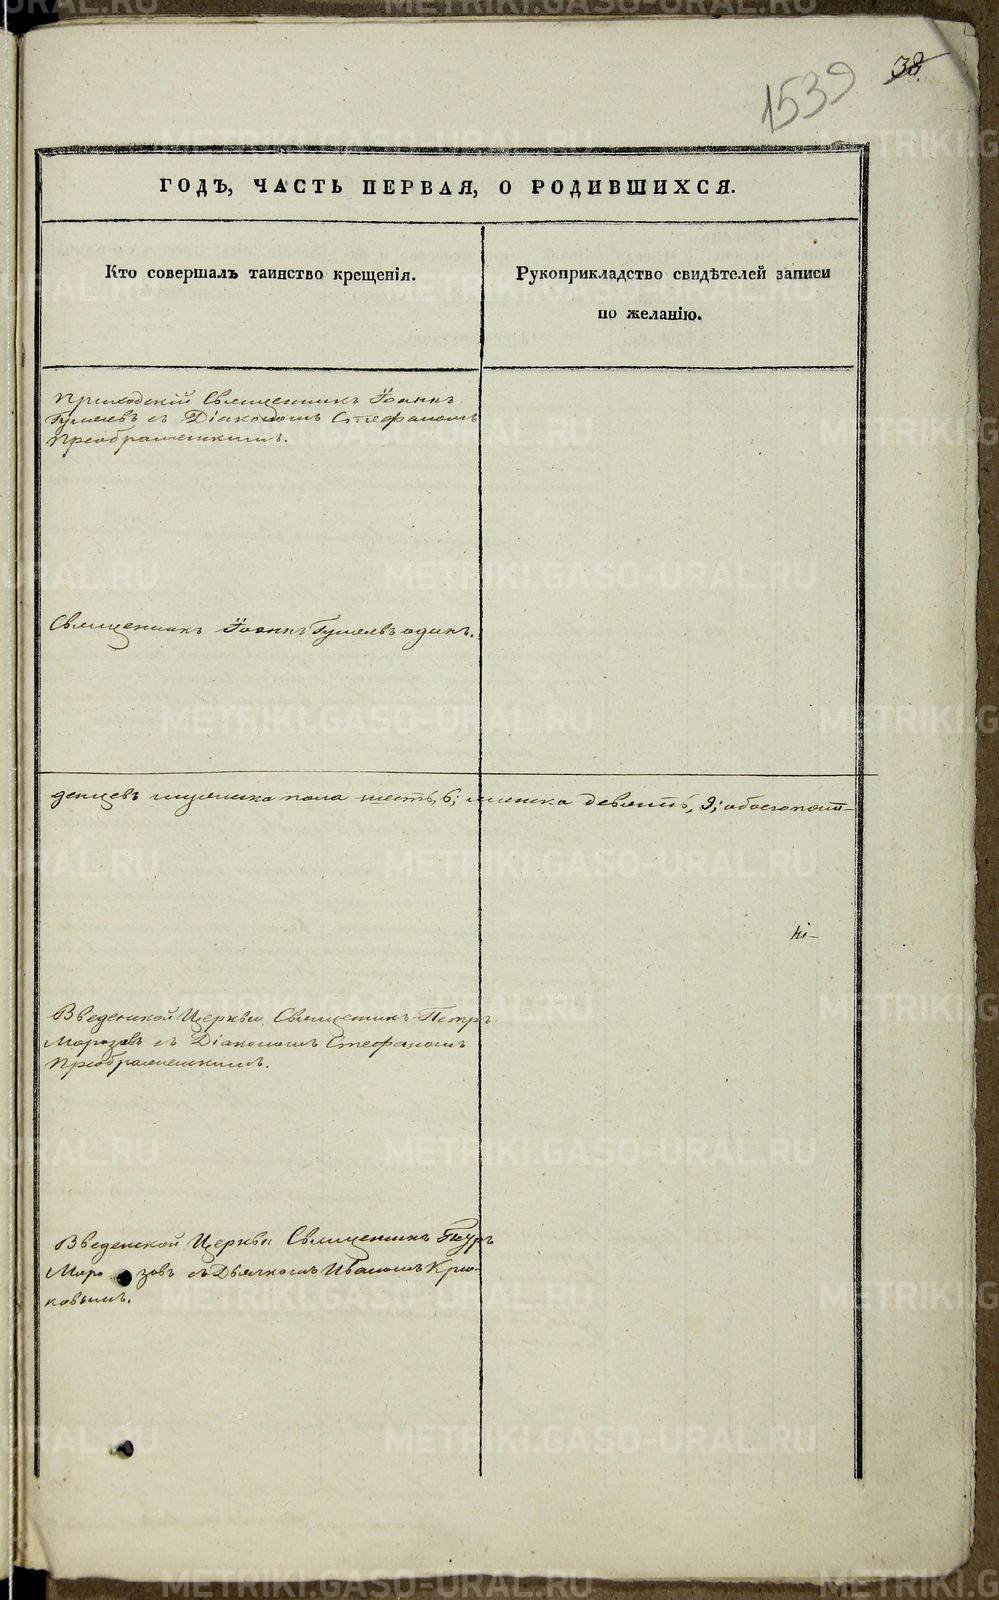 38.
1539
ГОДЪ, ЧАСТЬ ПЕРВАЯ, О РОДИВШИХСЯ.
Кто совершалъ таинство крещенія.
Рукоприкладство свидѣтелей записи
по желанію.
Приходскій Священникъ Іоаннъ
Гуляевъ съ Діакономъ Стефаномъ
Преображенскимъ.
Священникъ Іоаннъ Гуляевъ одинъ.
денцевъ мужеска пола шесть, 6; женска девять, 9; обоего пят-
Введенской Церкви Священникъ Петръ
Морозовъ съ Діакономъ Стефаномъ
Преображенскимъ.
Введенской Церкви Священникъ Петръ
Морозовъ съ Дьячкомъ Иваномъ Крю-
ковымъ.
METRIKI.GASO-URAL.RU